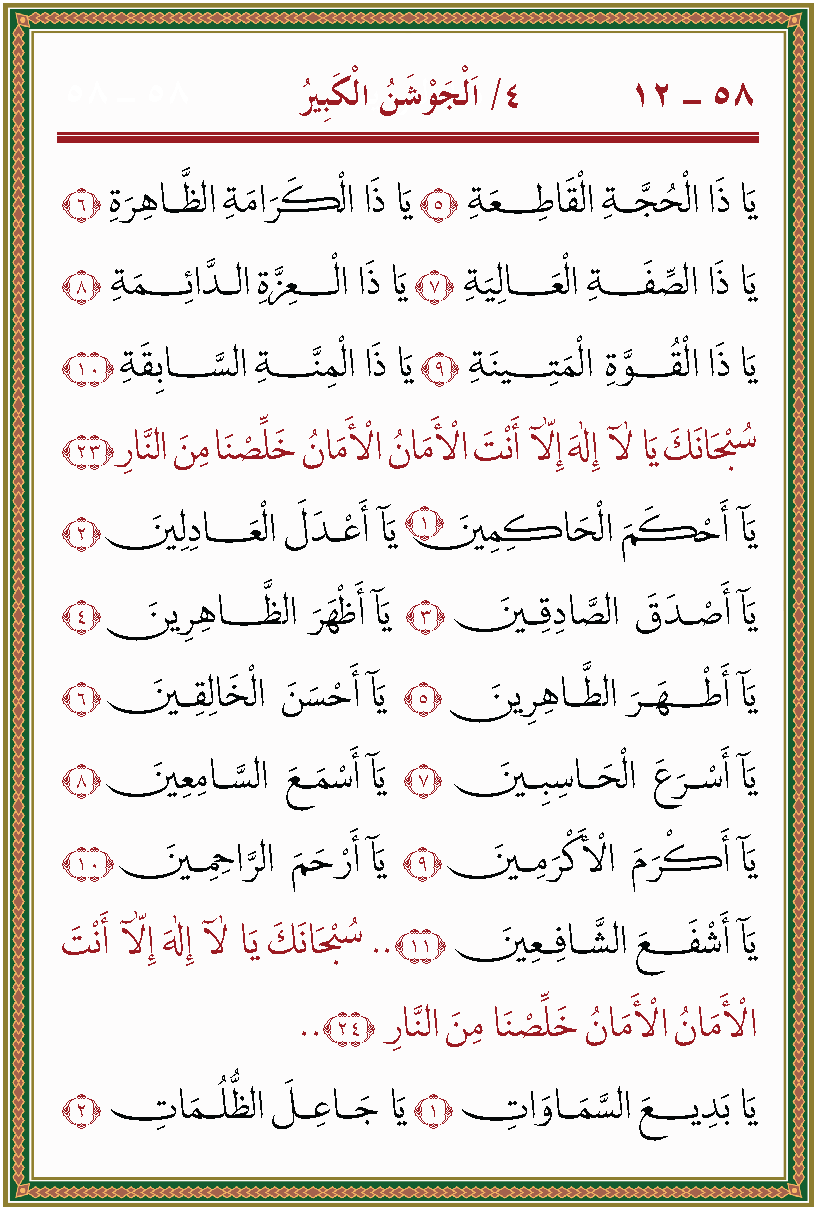 ٥٨ – ١٢ ٤/ اَلْجَوْشَنُ الْكَبِيرُ
يَا ذَا الْحُجَّةِ الْقَاطِعَةِ ﴿٥﴾ يَا ذَا الْكَرَامَةِ الظَّاهِرَةِ ﴿٦﴾
يَا ذَا الصِّفَةِ الْعَالِيَةِ ﴿٧﴾ يَا ذَا الْعِزَّةِ الدَّائِمَةِ ﴿٨﴾
يَا ذَا الْقُوَّةِ الْمَتِينَةِ ﴿٩﴾ يَا ذَا الْمِنَّةِ السَّابِقَةِ ﴿١٠﴾
سُبْحَانَكَ يَا لَٓا إِلٰهَ إِلَّٓا أَنْتَ الْأَمَانُ الْأَمَانُ خَلِّصْنَا مِنَ النَّارِ ﴿٢٣﴾
يَٓا أَحْكَمَ الْحَاكِمِينَ ﴿١﴾ يَٓا أَعْدَلَ الْعَادِلِينَ ﴿٢﴾
يَٓا أَصْدَقَ الصَّادِقِينَ ﴿٣﴾ يَٓا أَظْهَرَ الظَّاهِرِينَ ﴿٤﴾
يَٓا أَطْهَرَ الطَّاهِرِينَ ﴿٥﴾ يَٓا أَحْسَنَ الْخَالِقِينَ ﴿٦﴾
يَٓا أَسْرَعَ الْحَاسِبِينَ ﴿٧﴾ يَٓا أَسْمَعَ السَّامِعِينَ ﴿٨﴾
يَٓا أَكْرَمَ الْأَكْرَمِينَ ﴿٩﴾ يَٓا أَرْحَمَ الرَّاحِمِينَ ﴿١٠﴾
يَٓا أَشْفَعَ الشَّافِعِينَ ﴿١١﴾.. سُبْحَانَكَ يَا لَٓا إِلٰهَ إِلَّٓا أَنْتَ
الْأَمَانُ الْأَمَانُ خَلِّصْنَا مِنَ النَّارِ ﴿٢٤﴾..
يَا بَدِيعَ السَّمَاوَاتِ ﴿١﴾ يَا جَاعِلَ الظُّلُمَاتِ ﴿٢﴾